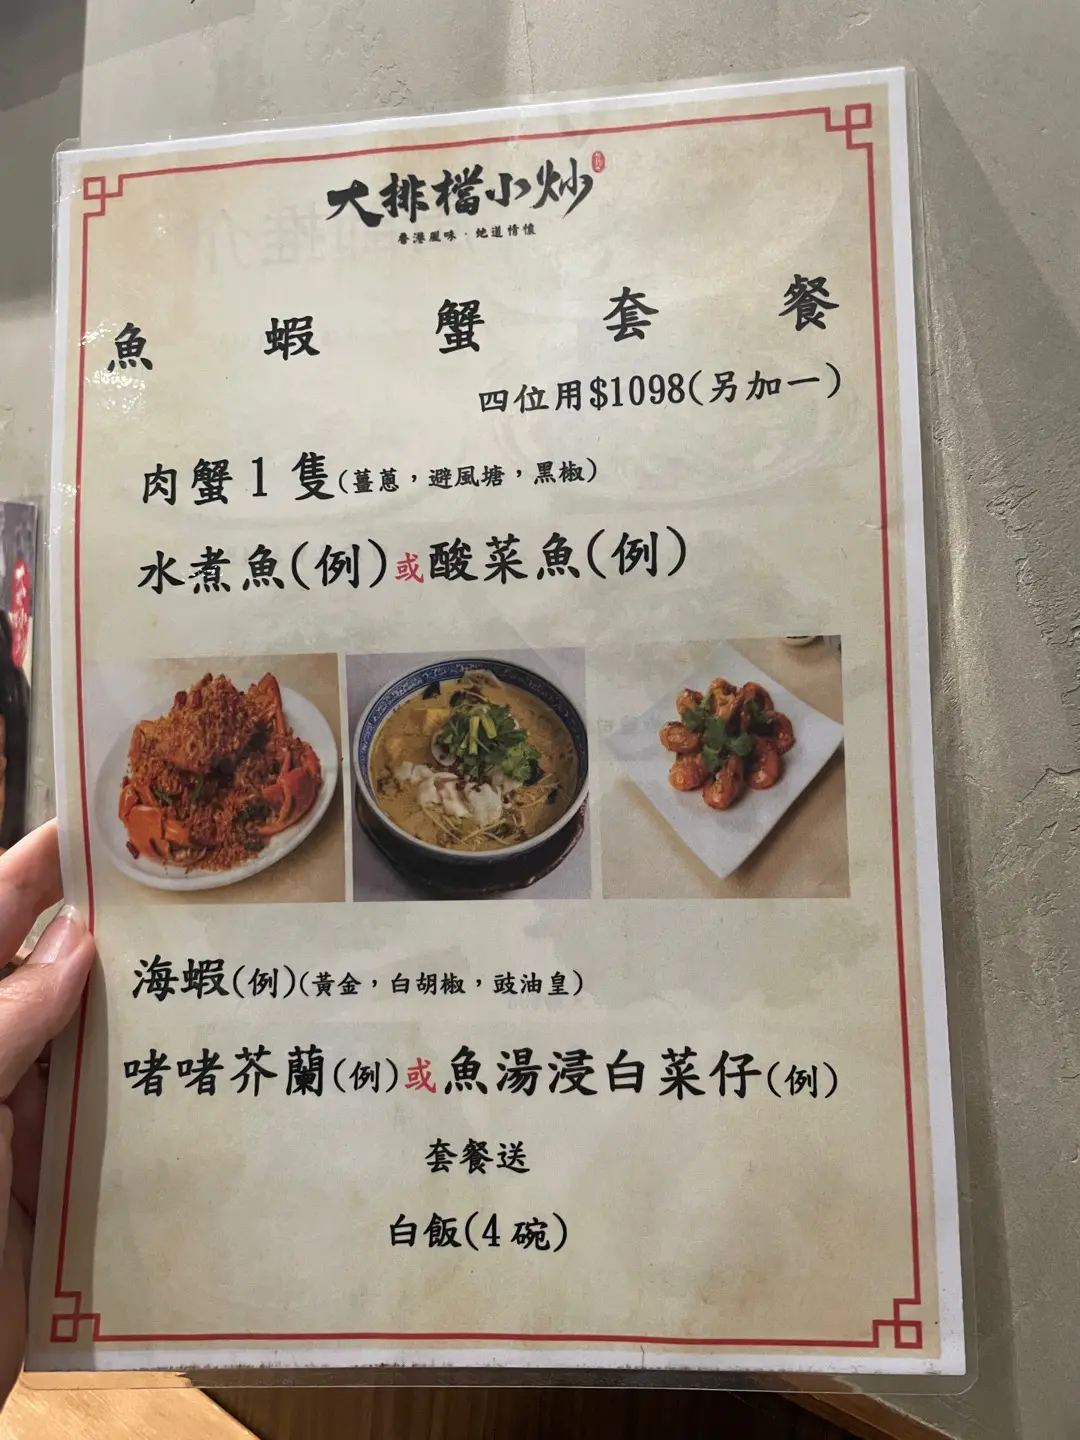 大排檔小炒
香港風味·地道情懷
魚蝦蟹套餐
四位用$1098(另加一)
肉蟹1隻(薑蔥,避風塘,黑椒)
水煮魚(例)或酸菜魚(例)
海蝦(例)(黃金,白胡椒,豉油皇)
啫啫芥蘭(例)或魚湯浸白菜仔(例)
套餐送
白飯(4碗)